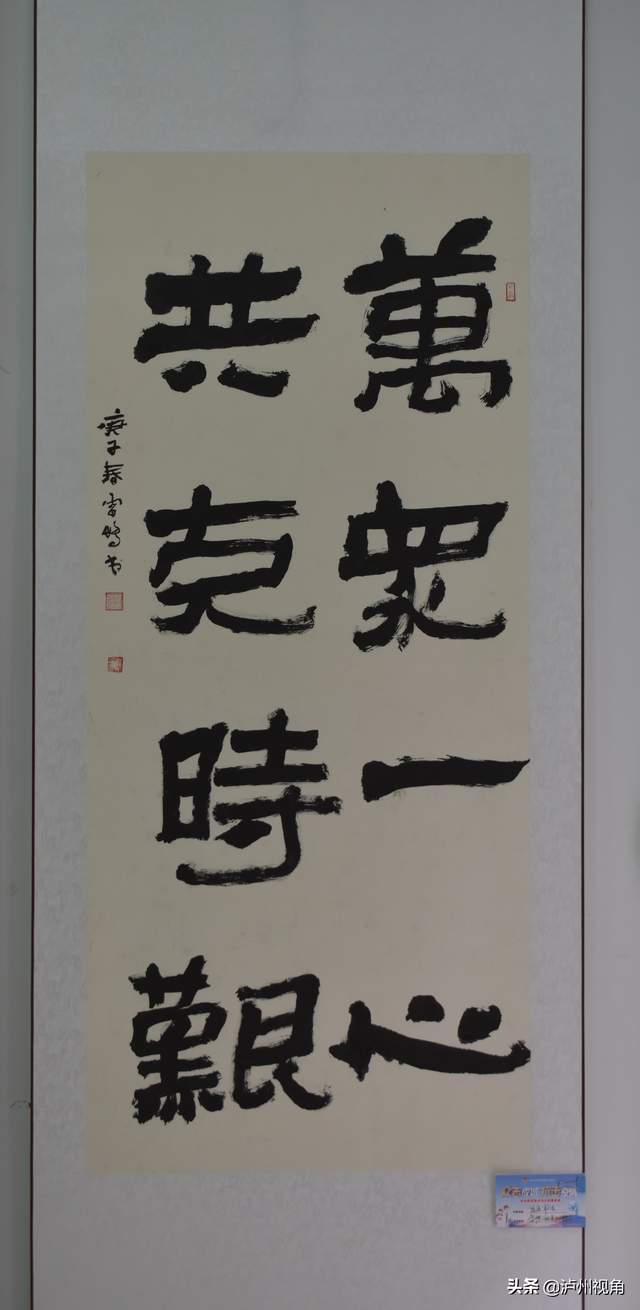 萬眾一心
共克時艱
庚子春雷鳴书
头条 @泸州视角